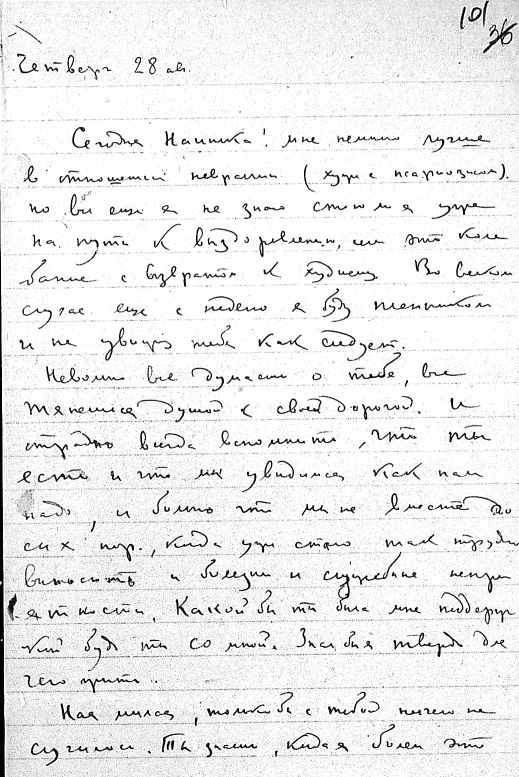 101
36
Четверг 28 ав.
Сегодня Наичика! мне немного лучше
в отношении невралгии (хуже с псориазисом).
но все еще я не знаю стою ли я уже
на пути к выздоровлению, или это коле
бание с возвратом к худшему Во всяком
случае еще с неделю я буду пленником
и не увижу тебя как следует.
Невольно все думаешь о тебе, все
тянешься душой к своей дорогой. И
отрадно всегда вспомнить, что ты
есть и что мы увидимся как нам
надо, и больно что мы не вместе до
сих пор, когда уже стало так трудно
выносить и болезни и служебные непри
ятности. Какой бы ты была мне поддерж
кой будь ты со мной. Знал бы я твердо для
чего жить..
Ная милая, только бы с тобой ничего не
случилось. Ты знаешь, когда я болен это